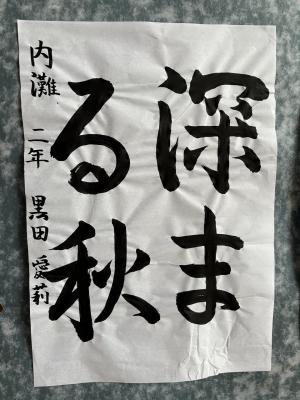 深ま
る秋
内灘 二年 黒田 愛莉